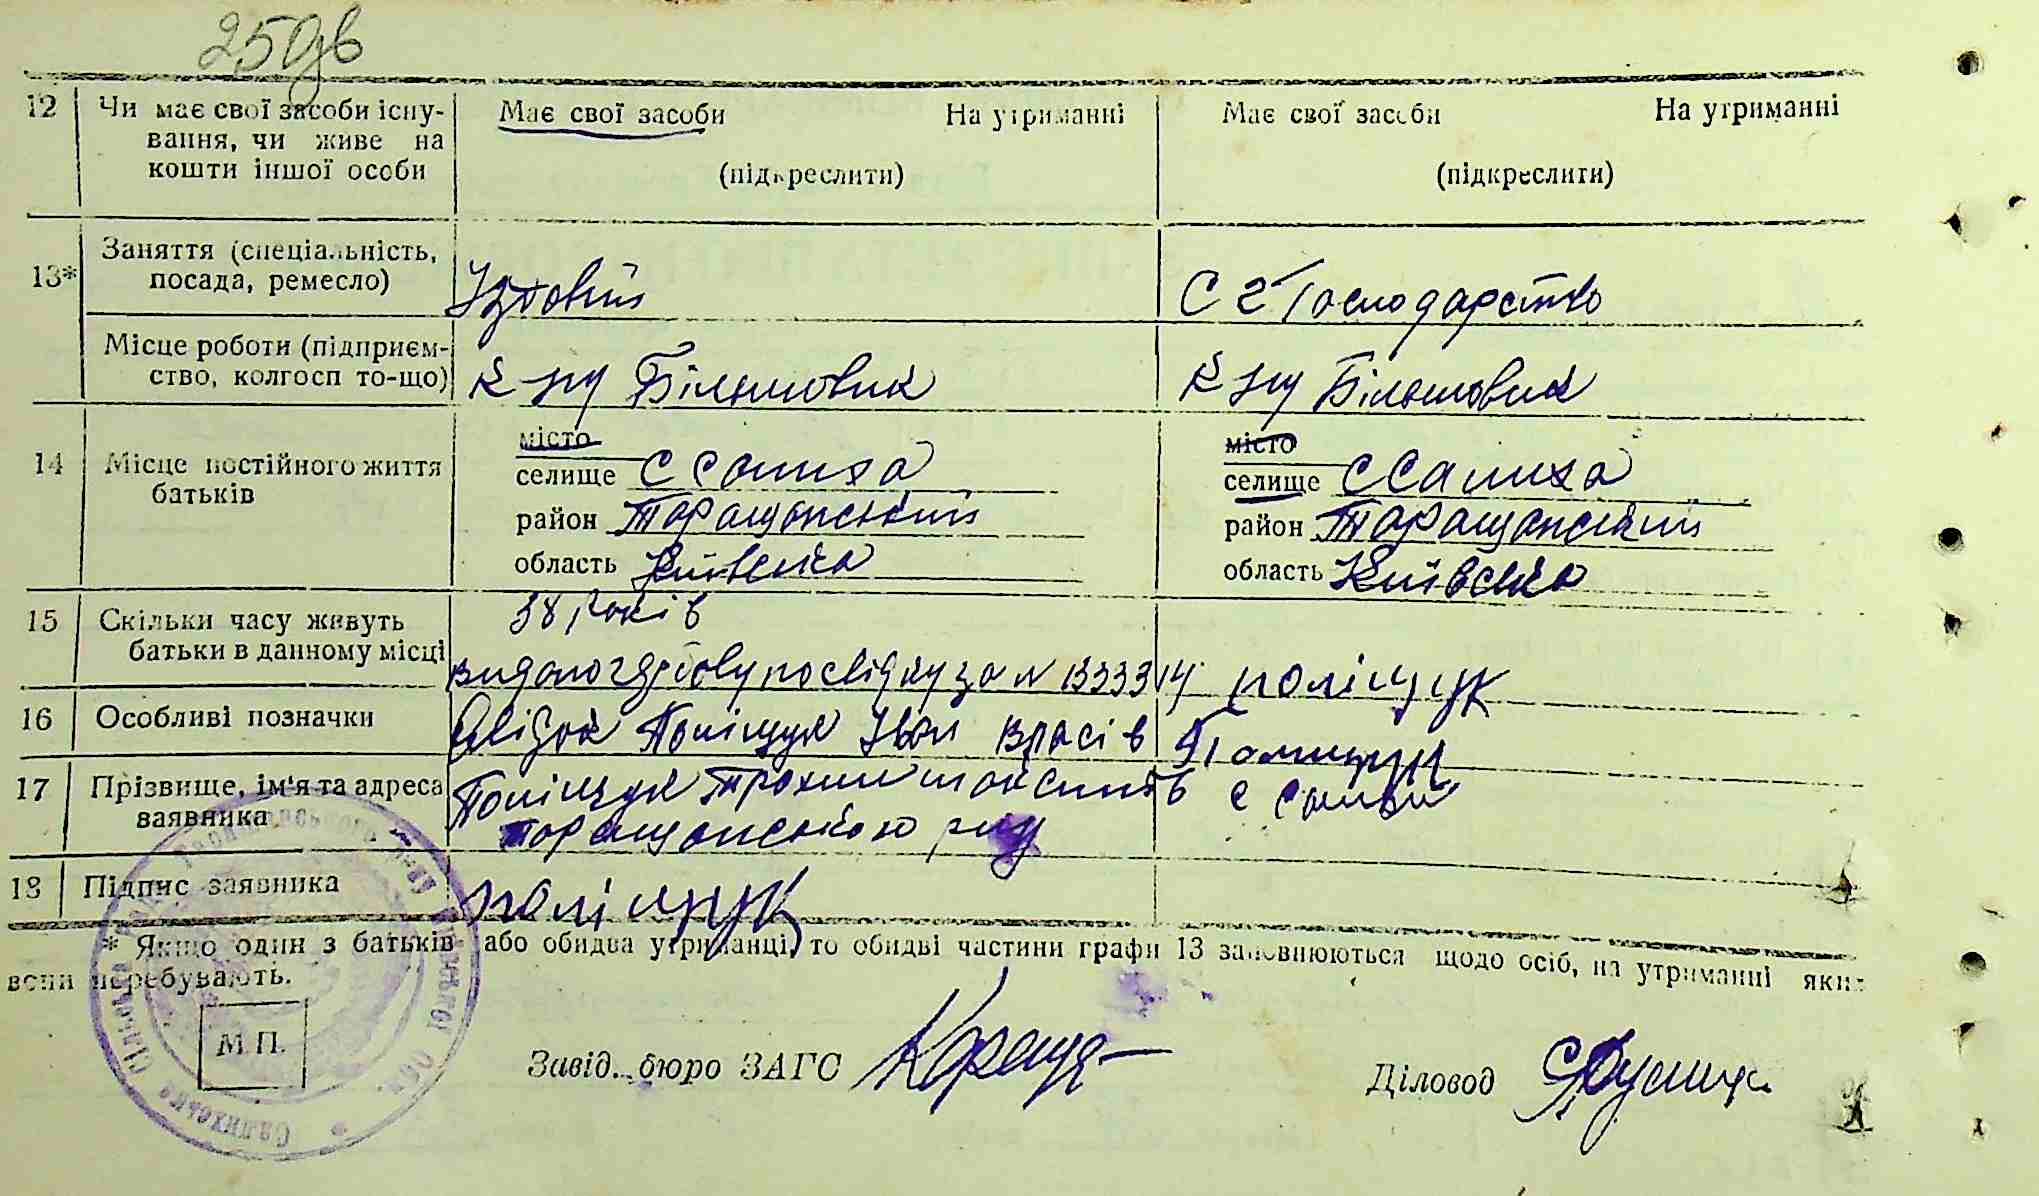 12 Чи має свої засоби існу- Має свої засоби На утриманні Має свої засоби На утриманні
вання, чи живе на
кошти іншої особи (підкреслити) (підкреслити)
13* Заняття (спеціальність,
посада, ремесло) Їздовий С Господарство
Місце роботи (підприєм-
ство, колгосп то-що) Більшовик Більшовик
14 Місце постійного життя
батьків
місто місто
селище с Салиха селище с Салиха
район Таращанський район Таращанський
область Київська область Київська
15 Скільки часу живуть 38 років
батьки в данному місці
Видано посвідку за N Поліщук
16 Особливі позначки Свідок Поліщук Іван Власів Поліщук
17 Прізвище, ім'я та адреса Поліщук Трохим с Салихи
заявника Таращанського р-ну
18 Підпис заявника Поліщук
* Якщо один з батьків або обидва утриманці, то обидві частини графи 13 заповнюються щодо осіб, на утриманні яких
вони перебувають.
М.П.
Завід. бюро ЗАГС Діловод